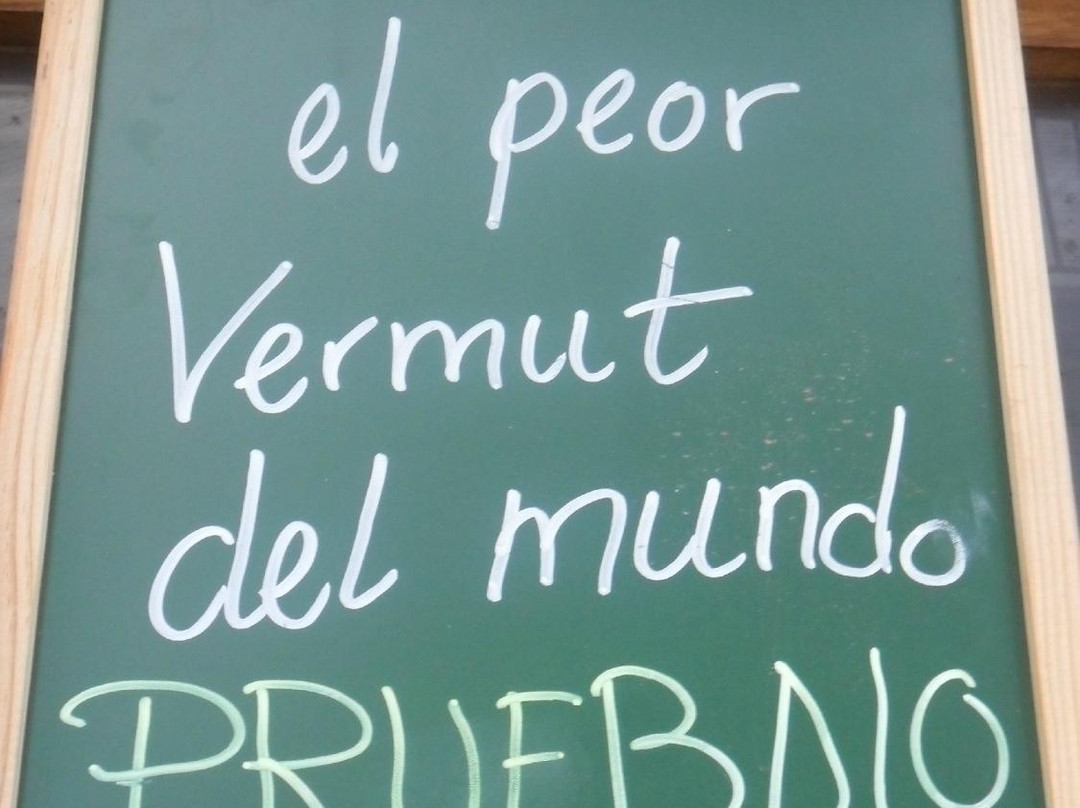 el peor
Vermut
del mundo
PRUEBALO